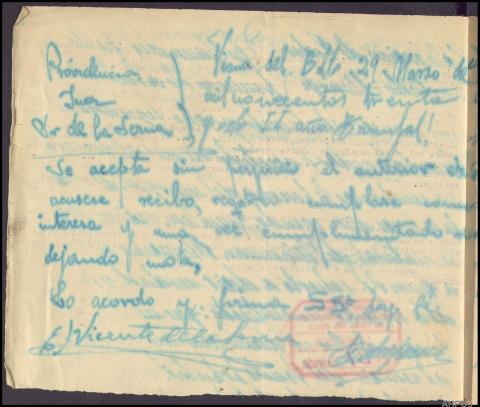 Providencia
Juez
Sr de la Serna
Viana del Bollo 29 Marzo de
mil novecientos treinta
y ocho II año Triunfal!
Se acepta sin perjuicio el anterior
acusese recibo, cumplase como
interesa y una vez cumplimentado
dejando nota,
Lo acordo y firma S Sª doy fé.
E/ Vicente de la Serna